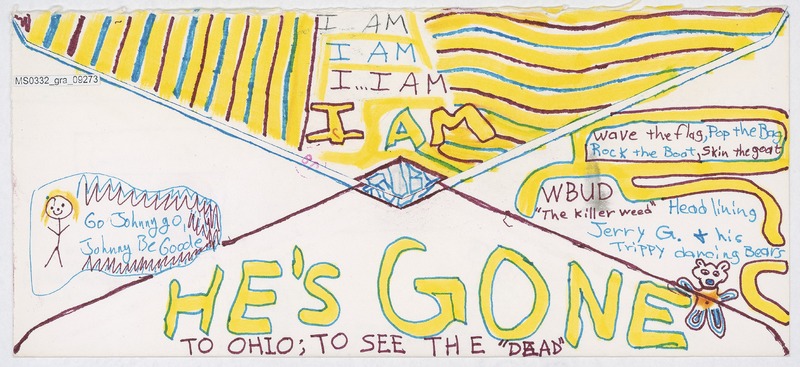 I AM
I AM
I...I AM
I AM
MS0332_gra_09273
wave the flag, Pop the Bag
Rock the Boat, Skin the goat
WBUD
"The killer weed" Headlining
Jerry G. + his
Trippy dancing Bears
Go Johnny go,
Johnny Be Goode
HE'S GONE
TO OHIO; TO SEE THE "DEAD"